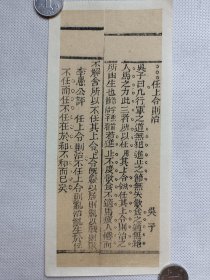 任上令則治
吳子
吳子曰凡行軍之道無犯進止之節無失飲食之適無絕
人馬之力此三者所以任其上令任其上令則治之
所由生也若進止不度飲食不適馬疲人倦而
不解舍所以不任其上令上令既廢以居則亂以戰則敗
李公評 任上令則治不任上令則亂治亂生於任
不任而任不任在於和不和而已矣